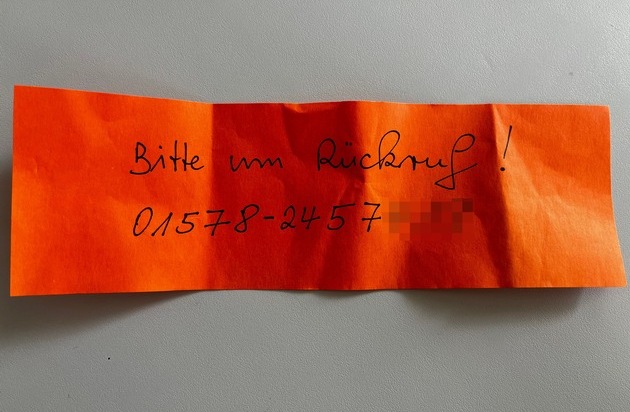 Bitte um Rückruf!
01578-2457